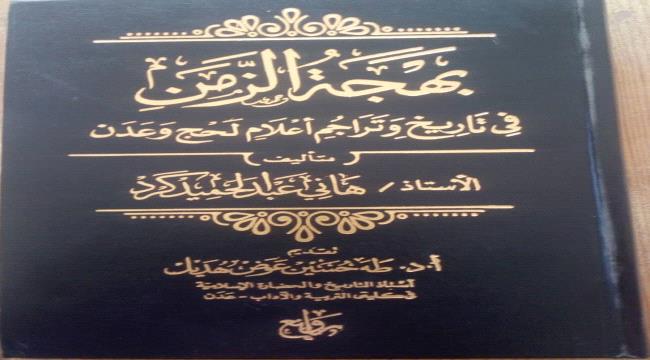 بَهْجَةُ الزَّمَن
في تاريخ وتراجم أعلام لحج وعدن
تأليف
الأستاذ / هاني عبدالحميد كرد
تقديم
أ.د. طه حسين عوض هديل
أستاذ التاريخ والحضارة الإسلامية
في كليتي التربية والآداب - عدن